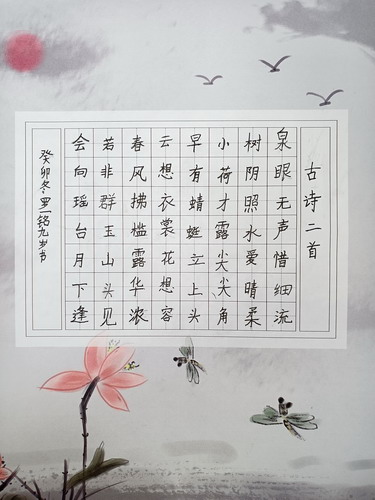 古诗二首
泉眼无声惜细流
树阴照水爱晴柔
小荷才露尖尖角
早有蜻蜓立上头
云想衣裳花想容
春风拂槛露华浓
若非群玉山头见
会向瑶台月下逢
癸卯冬罗一铭九岁书